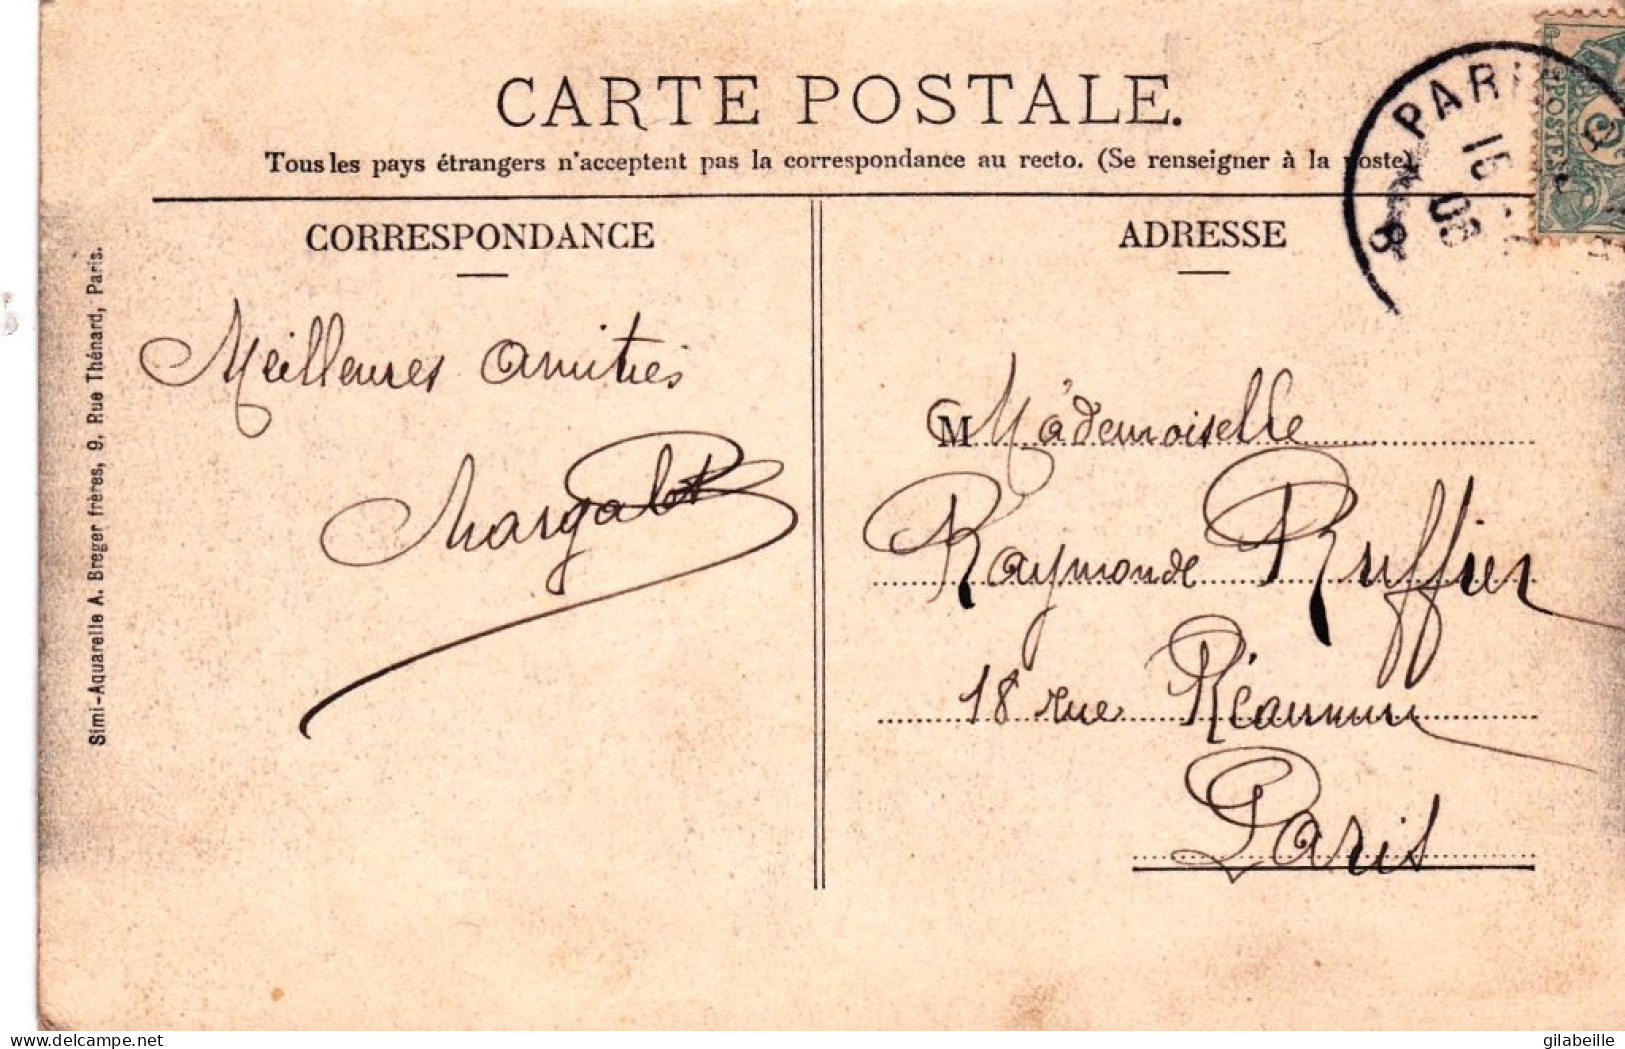 CARTE POSTALE.
Tous les pays étrangers n'acceptent pas la correspondance au recto. (Se renseigner à la poste)
CORRESPONDANCE
ADRESSE
Meilleures amitiés
Margalot
M Mademoiselle
Raymonde Ruffier
18 rue Réaumur
Paris
Simi-Aquarelle A. Breger frères, 9, Rue Thénard, Paris.
PARIS
POSTES
www.delcampe.net
gilabeille